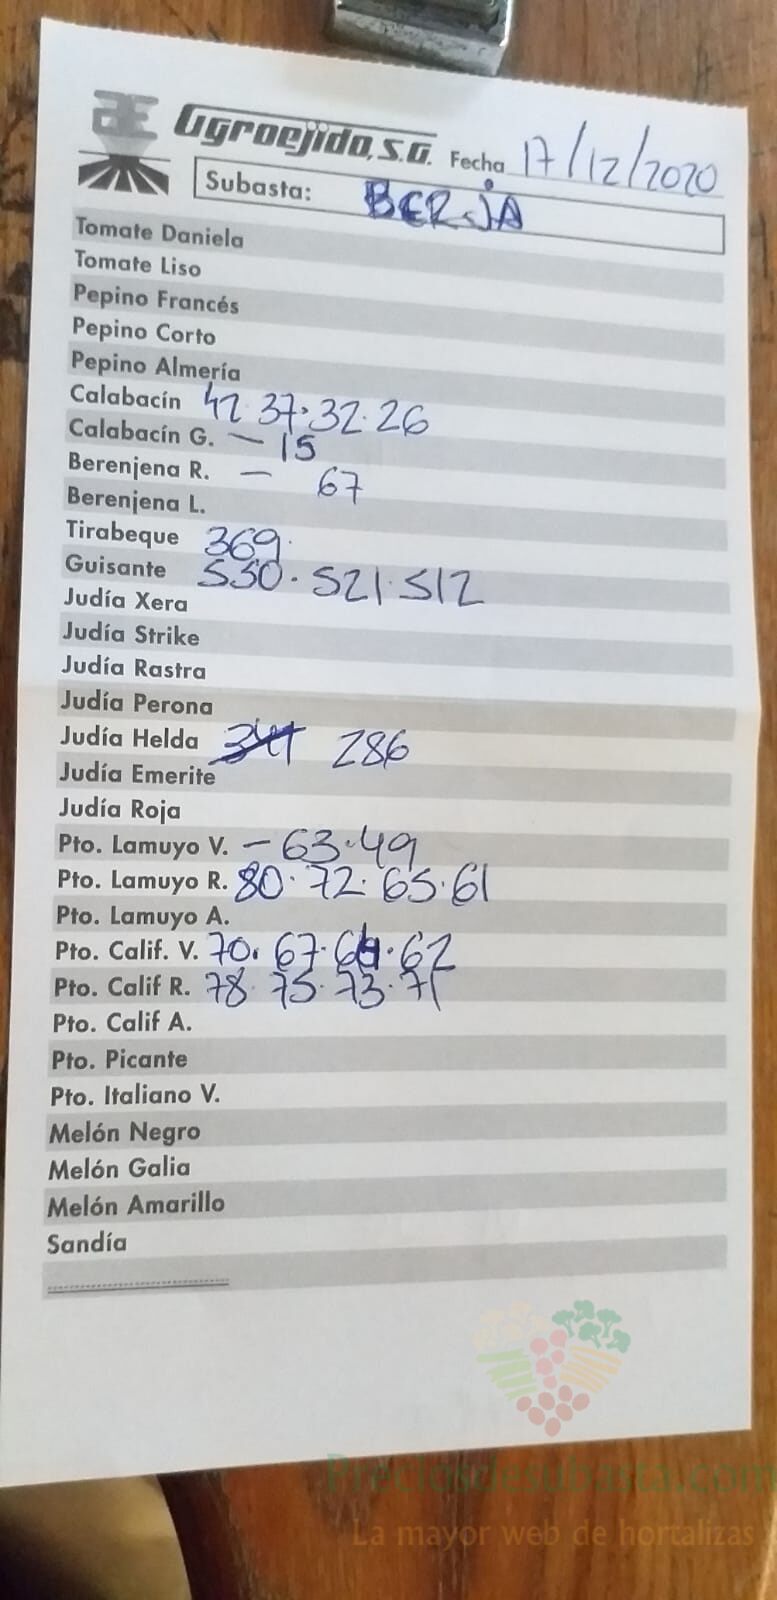 Agroejido, S.A. Fecha 17/12/2020
Subasta: BERJA
Tomate Daniela
Tomate Liso
Pepino Francés
Pepino Corto
Pepino Almería
Calabacín 42 37·32·26
Calabacín G. — 15
Berenjena R. — 67
Berenjena L.
Tirabeque 369·
Guisante 530·521·512
Judía Xera
Judía Strike
Judía Rastra
Judía Perona
Judía Helda 286
Judía Emerite
Judía Roja
Pto. Lamuyo V. — 63·49
Pto. Lamuyo R. 80·72·65·61
Pto. Lamuyo A.
Pto. Calif. V. 70·67·64·62
Pto. Calif R. 78·75·73·71
Pto. Calif A.
Pto. Picante
Pto. Italiano V.
Melón Negro
Melón Galia
Melón Amarillo
Sandía
Preciosdesubasta.com
La mayor web de hortalizas